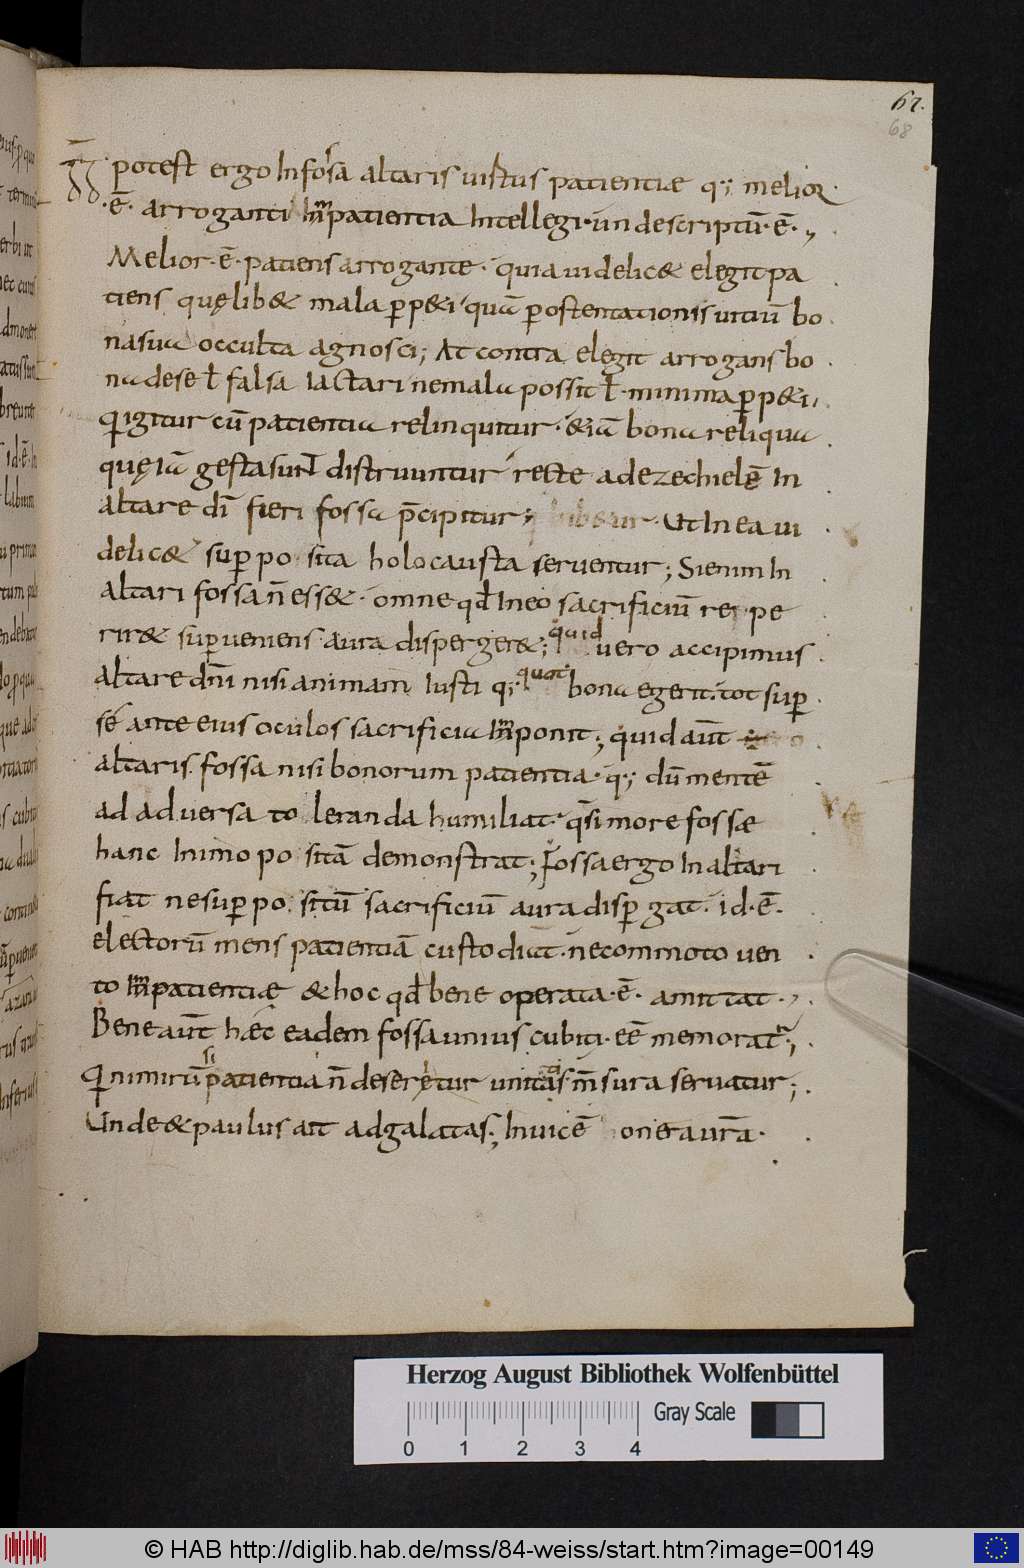 67.
68
potest ergo In fossa altaris uirtus patientiæ q;; melior
·ē· arroganti Impatientia Intellegi· un descriptū· ē·,
Melior·ē· patiens arrogante· quia uidelicet elegit pa
tiens quęlibet mala perpeti quā postentationis uitiū bo
na sua occulta agnosci; At contra elegit arrogans bo
na de se ł falsa Iactari ne mala possit ł· minima perpeti,
Qui igitur cū patientia relinquitur· etiā bona reliqua
quę Iā gesta sunt distruuntur recte ad ezechielē In
altare dī fieri fossa p̄cipitur; Ut In ea ui
delicet superposita holocausta seruentur; Si enim In
altari fossa n̄ esset· omne qd In eo sacrificiū reperi
riret superueniens aura dispergeret; quid uero accipimus
altare dn̄i nisi animam Iusti q;; quot bona egerit· tot super
se ante eius oculos sacrificia Imponit; quid aūt
altaris fossa nisi bonorum patientia· q;; dū mentē
ad aduersa toleranda humiliat· q̄si more fossæ
hanc In imo positā demonstrat; Fossa ergo In altari
fiat ne superpositū sacrificiū aura disp gat· id·ē·
electorū mens patientiā custodiat· ne commoto uen
to Impatientię et hoc qd bene operata·ē· amittat·,
Bene aūt hæc eadem fossa unius cubiti· eē memorat;
Qui nimirū si patientia n̄ deseritur unitatis m̄sura seruatur;
Unde et paulus ait ad galatas; Inuicē onera ur̄a·
Herzog August Bibliothek Wolfenbüttel
Gray Scale
0 1 2 3 4
© HAB http://diglib.hab.de/mss/84-weiss/start.htm?image=00149